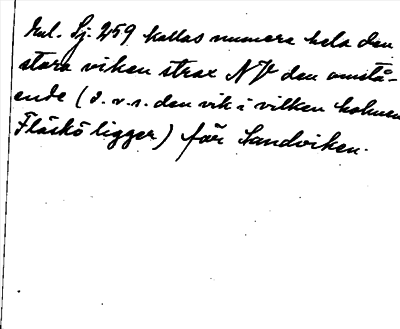 Enl. Sj. 259 kallas numera hela den
stora viken strax NV den omstå-
ende (d.v.s. den vik i vilken holmen
Fläskö ligger) för Sandviken.